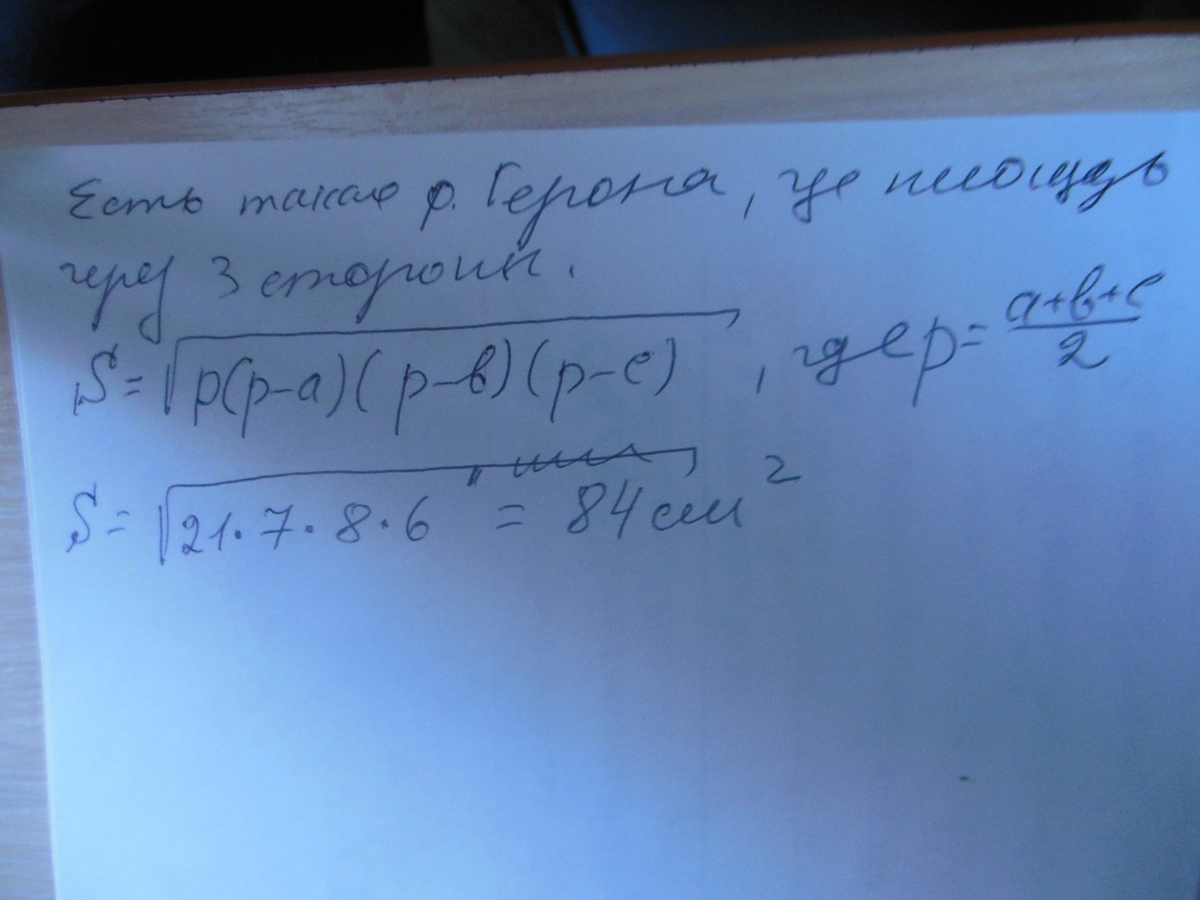 Есть такая ф. Герона, где площадь
через 3 стороны.
S = √p(p-a)(p-b)(p-c) , где p = a+b+c/2
S = √21·7·8·6 = 84 см²